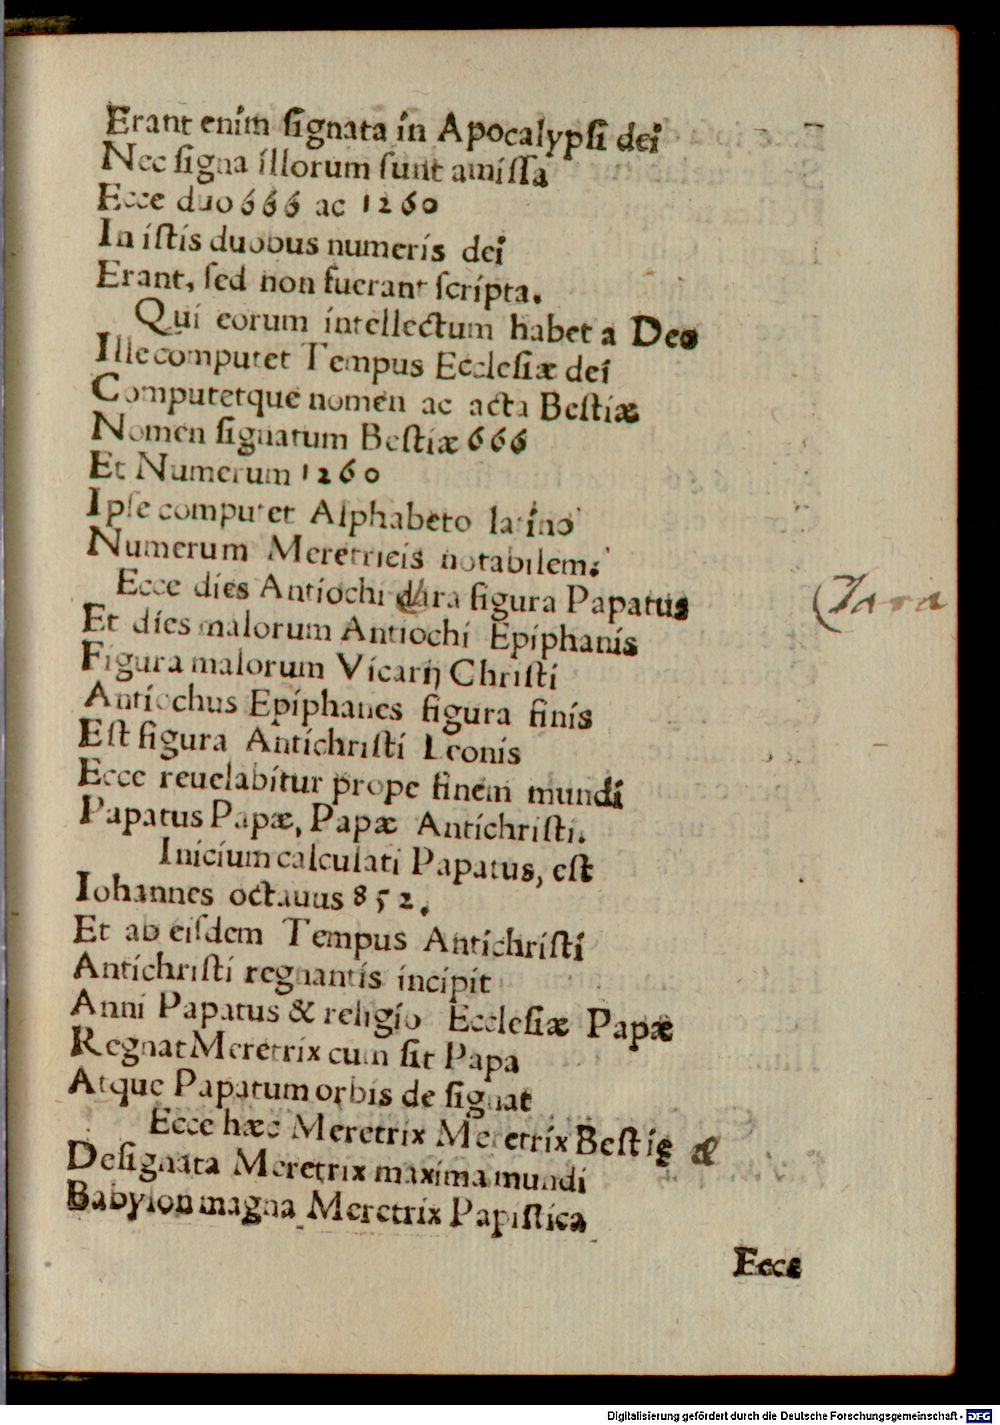 Erant enim ſignata in Apocalypſi dei
Nec ſigna illorum ſunt amiſſa
Ecce duo 666 ac 1260
In iſtis duobus numeris dei
Erant, ſed non fuerant ſcripta.
Qui eorum intellectum habet a Deo
Ille computet Tempus Eccleſiæ dei
Computetque nomen ac acta Beſtiæ
Nomen ſignatum Beſtiæ 666
Et Numerum 1260
Ipſe computet Alphabeto latino
Numerum Meretricis notabilem.
Ecce dies Antiochi dara figura Papatus
Clara
Et dies malorum Antiochi Epiphanis
Figura malorum Vicarij Chriſti
Antiochus Epiphanes figura finis
Eſt figura Antichriſti Leonis
Ecce reuelabitur prope finem mundi
Papatus Papæ, Papæ Antichriſti.
Inicium calculati Papatus, eſt
Iohannes octauus 852.
Et ab eiſdem Tempus Antichriſti
Antichriſti regnantis incipit
Anni Papatus & religio Eccleſiæ Papæ
Regnat Meretrix cum ſit Papa
Atque Papatum orbis de ſignat
Ecce hæc Meretrix Meretrix Beſtię æ
Deſignata Meretrix maxima mundi
Babylon magna Meretrix Papiſtica
Ecce
Digitalisierung gefördert durch die Deutsche Forschungsgemeinschaft - DFG